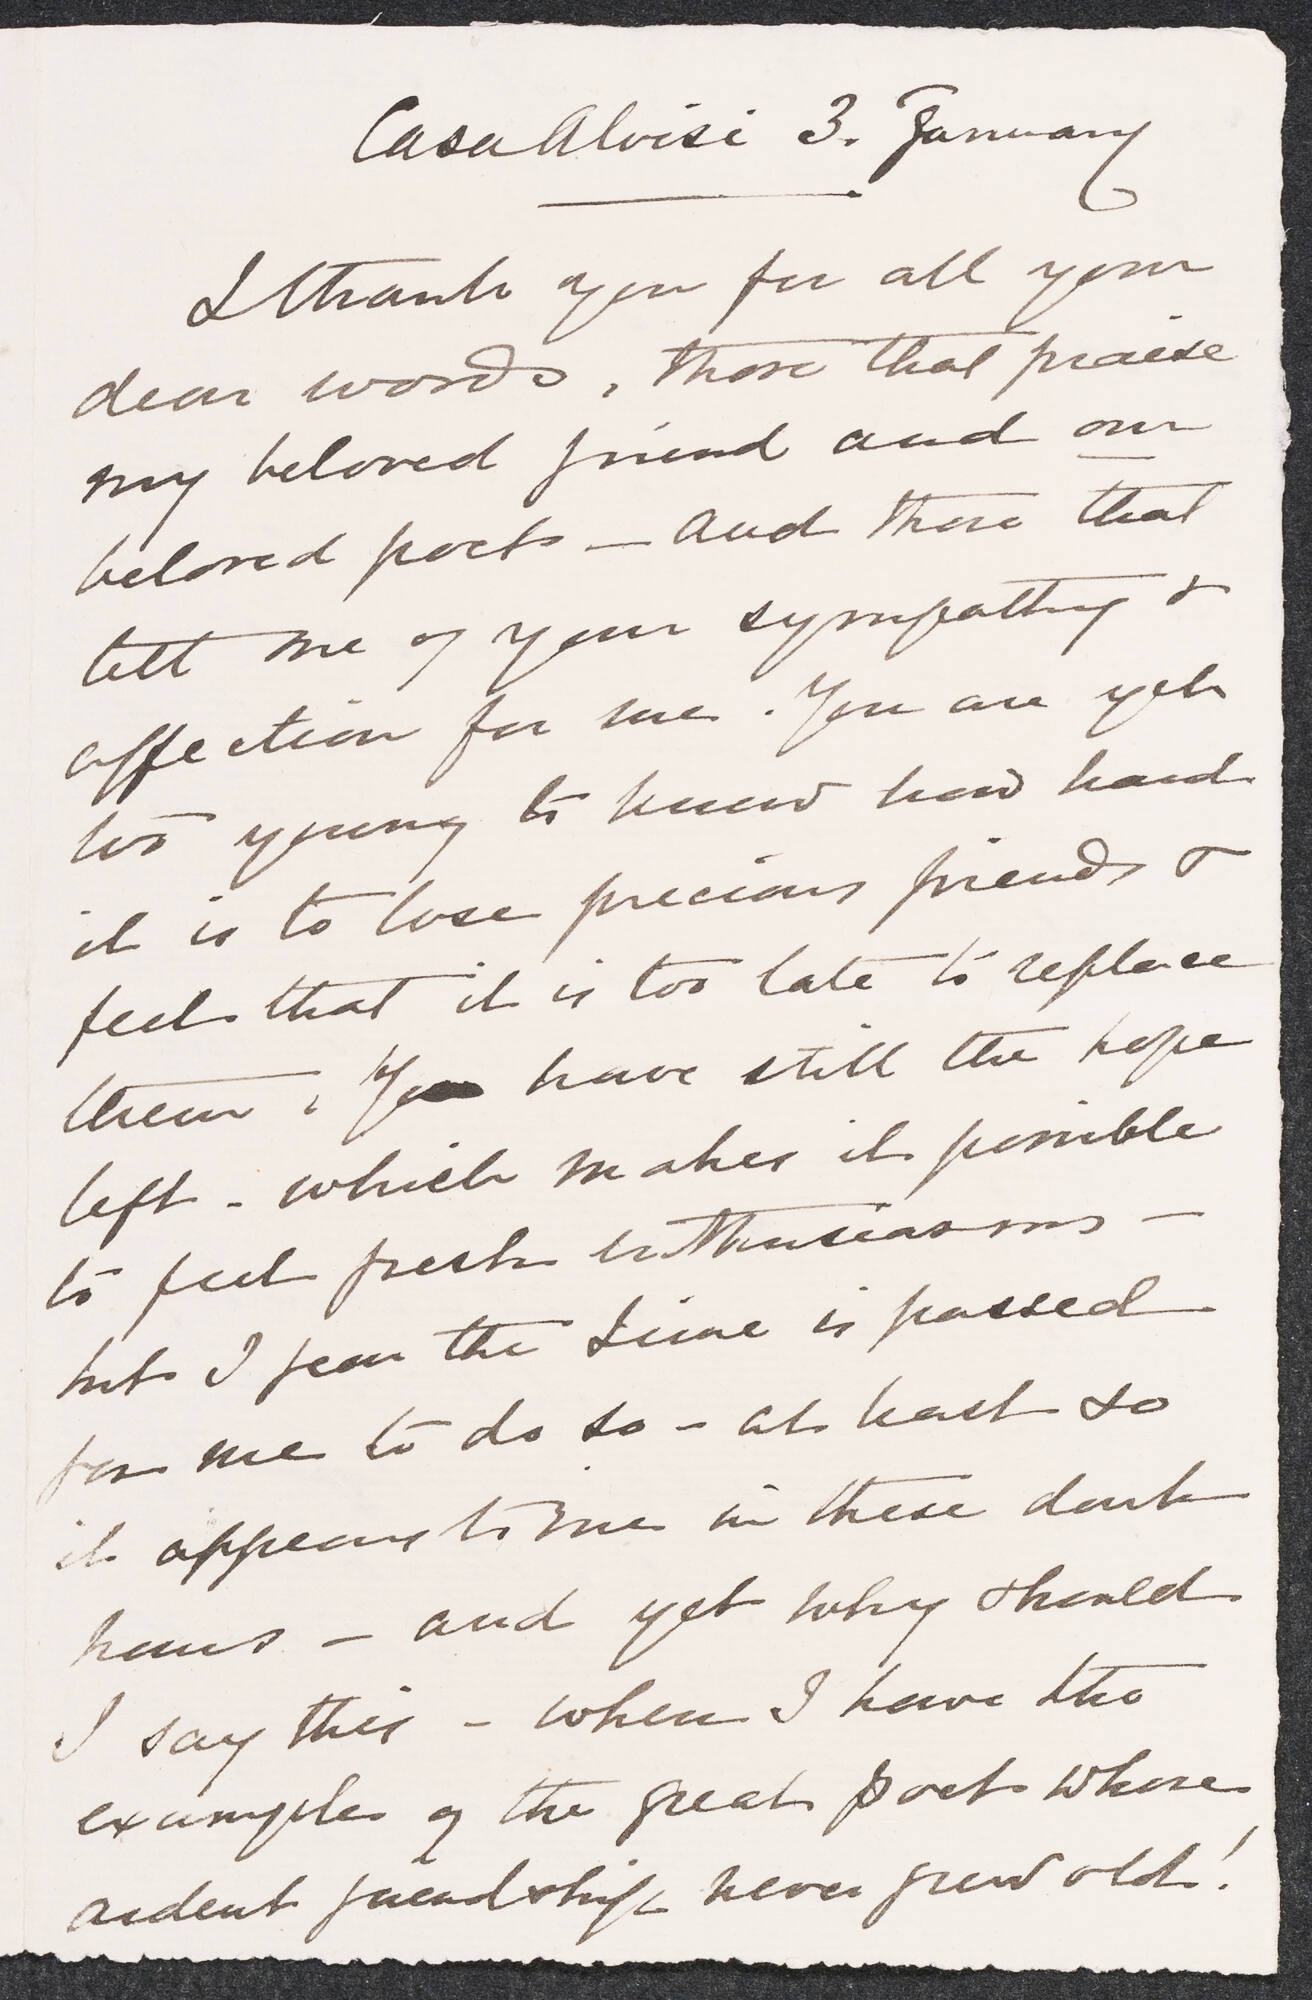 Casa Alvisi 3. January
I thank you for all your
dear words, those that praise
my beloved friend and our
beloved poet – and those that
tell me of your sympathy &
affection for me. You are yet
too young to know how hard
it is to lose precious friends &
feel that it is too late to replace
them. You have still the hope
left - which makes it possible
to feel fresh enthusiasms –
but I fear the time is passed
for me to do so – at least so
it appears to me in these dark
hours – and yet why should
I say this – when I have the
example of the great poet whose
ardent friendship never grew old!